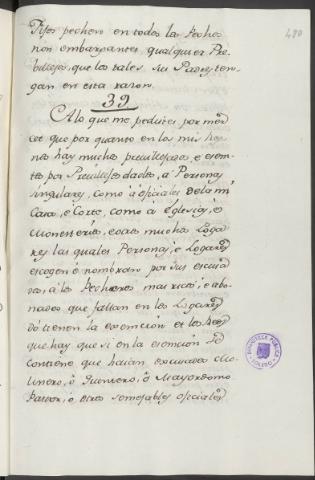 480
Fijos pechero en todos la Pechos
non embargantes qualquier Pre
billejos, que los tales sus Padres ten-
gan en esta razon.
39
A lo que me pedistes por mer
ced que por quanto en los mis
nos hay muchos previllejados, e exem
tos, por Previllejos dados, a Personas
singulares, como a oficiales de la mi
Casa, e Corte, como a Iglesias, e
Monesterios, e otros muchos Loga
res las quales Personas, e Logares
escogen e nombraron por sus escusa
dos, a los Pecheros mas ricos, e abo
nados que fallan en los Logares
do tienen la exemcion et los
que hay que si en la exemcion se
contiene que haian escusados Mo
linero, o Quintero, o Mayordomo
Pastor, o otros semejables oficiales
BIBLIOTECA PUBLICA
TOLEDO